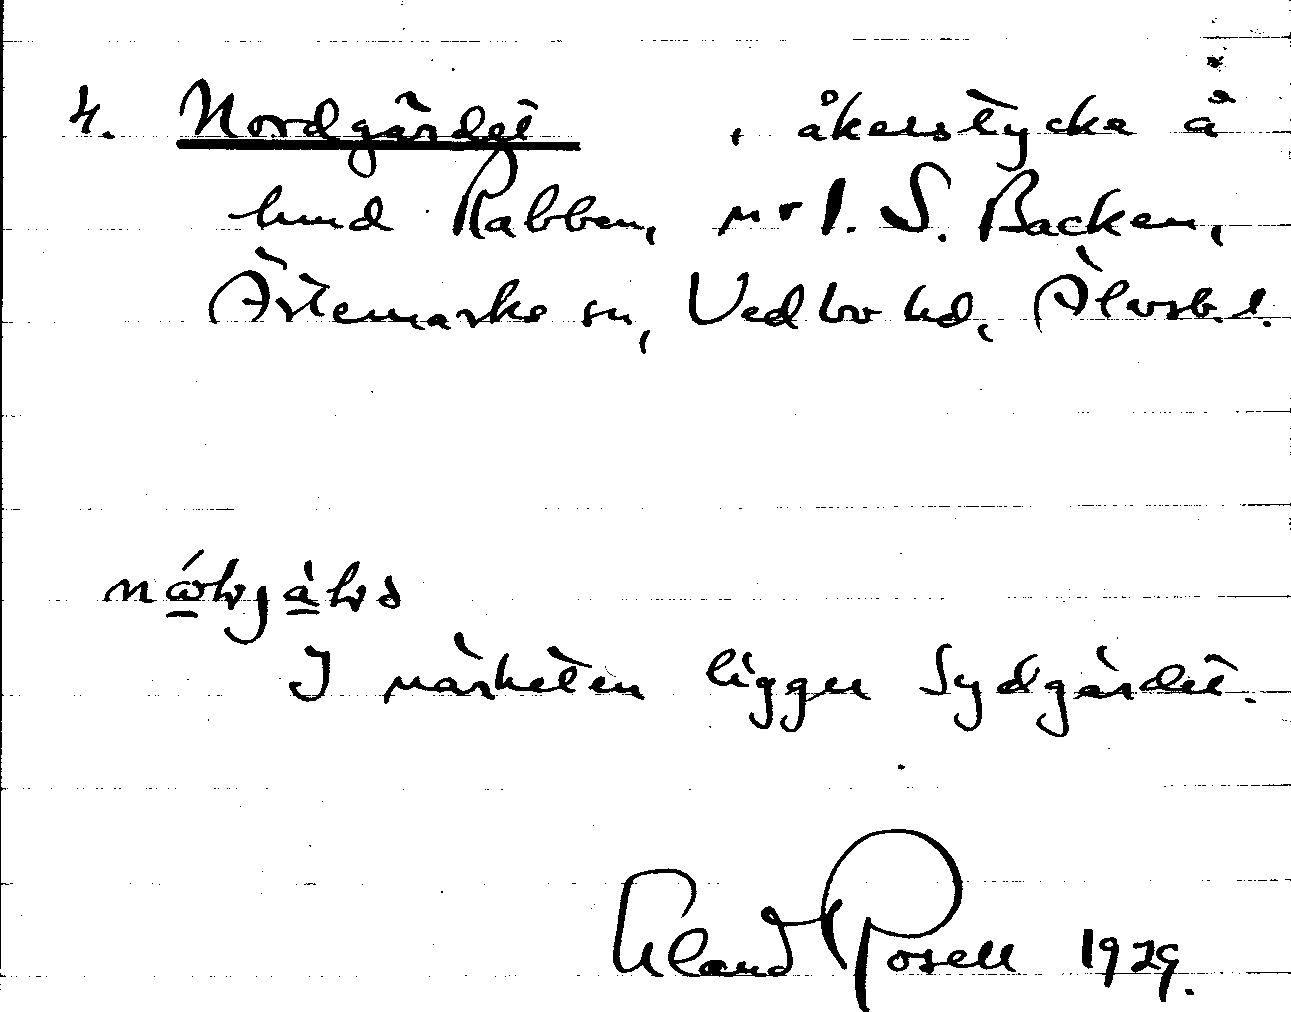 4. Nordgärdet , åkerstycke å
lund Rabben, nr 1. S. Backen,
Ärtemarks sn, Vedbo hd, Älvsb. l.
I närheten ligger Sydgärdet.
Erland Rosell 1929.